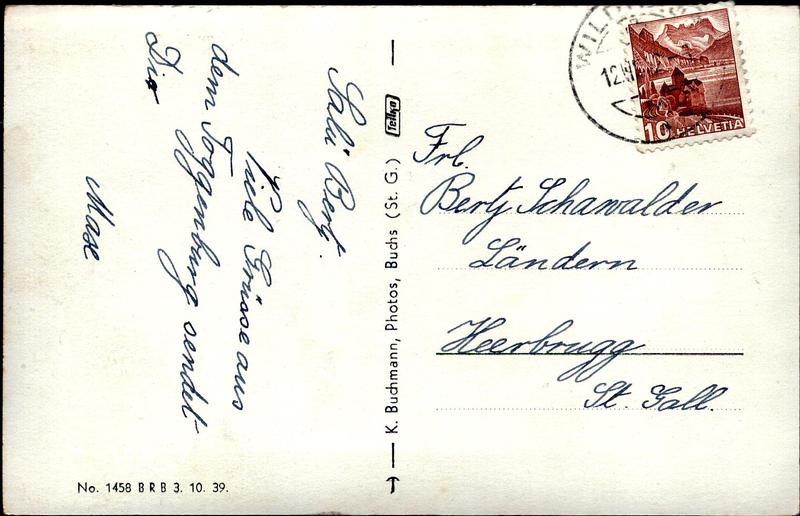 Salü Berty.
Viele Grüsse aus
dem Toggenburg sendet
Dir
Mase
Tellko
K. Buchmann, Photos, Buchs (St. G.)
No. 1458 B R B 3. 10. 39.
10 HELVETIA
Frl.
Berty Schawalder
Ländern
Heerbrugg
St. Gall.